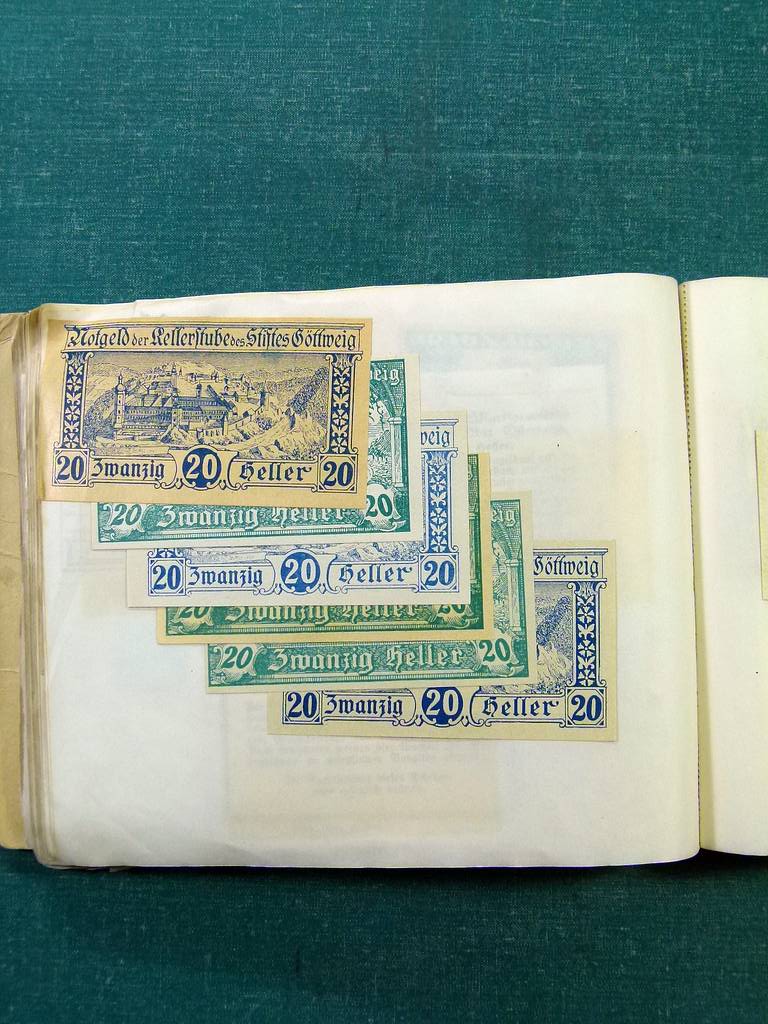 Notgeld der Kellerstube des Stiftes Göttweig
20 Zwanzig 20 Heller 20
eig
20 Zwanzig Heller 20
weig
20 Zwanzig 20 Heller 20
20 Zwanzig Heller 20
eig
20 Zwanzig Heller 20
Göttweig
20 Zwanzig 20 Heller 20